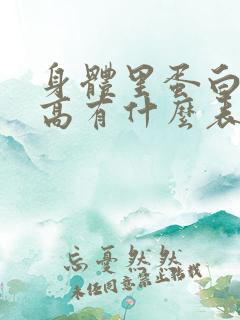 身體里蛋白
高有什麼表
忘憂然然
未经同意禁止搬我